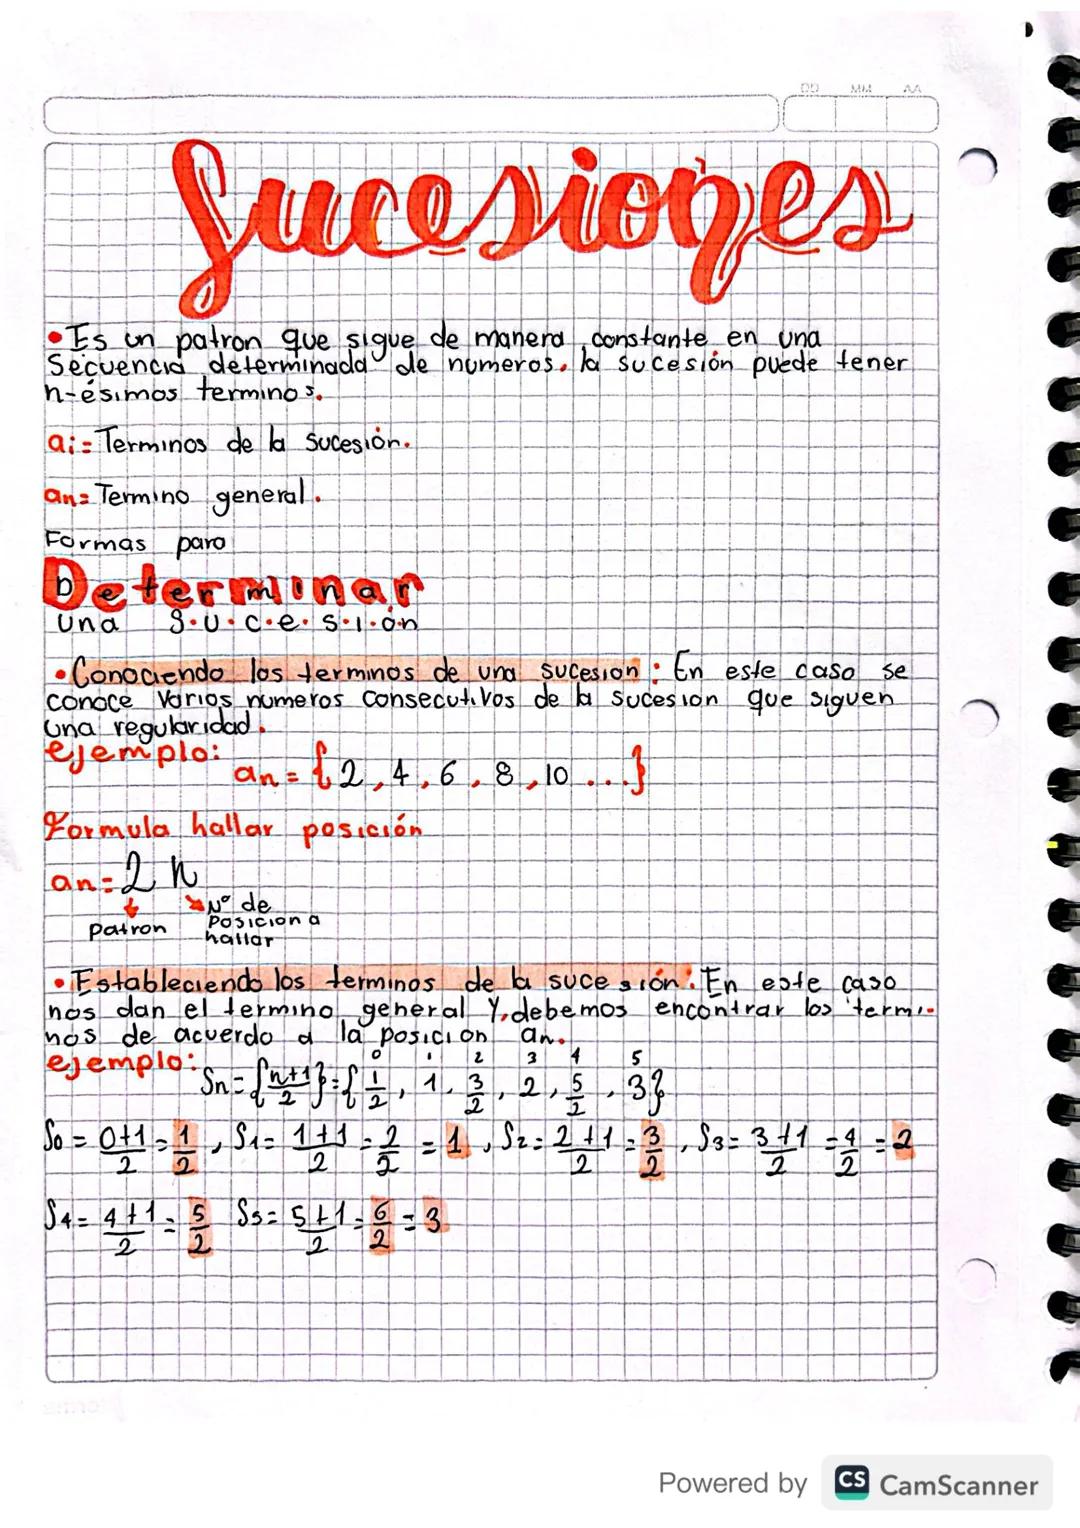 DD MM AA
Sucesiones
• Es un patron que sigue de manera constante en una
Secuencia determinada de numeros. la sucesión puede tener
n-ésimos terminos.
ai= Terminos de la sucesión.
an= Termino general.
Formas para
Determinar
una S.u.c.e.s.i.ón
• Conociendo los terminos de una sucesion: En este caso se
conoce varios numeros consecutivos de la sucesion que siguen
una regularidad.
ejemplo:
an = {2, 4, 6, 8, 10 ...}
Formula hallar posición
an= 2 n
patron
Nº de
Posicion a
hallar
• Estableciendo los terminos de la sucesión: En este caso
nos dan el termino general y, debemos encontrar los termi-
nos de acuerdo a la posicion an.
0 1 2 3 4 5
ejemplo: Sn= {n+1/2} = {1/2, 1, 3/2, 2, 5/2, 3}
S0 = 0+1/2 = 1/2, S1= 1+1/2 = 2/2 = 1, S2= 2+1/2 = 3/2, S3= 3+1/2 = 4/2 = 2
S4= 4+1/2 = 5/2 S5= 5+1/2 = 6/2 = 3
Powered by CS CamScanner